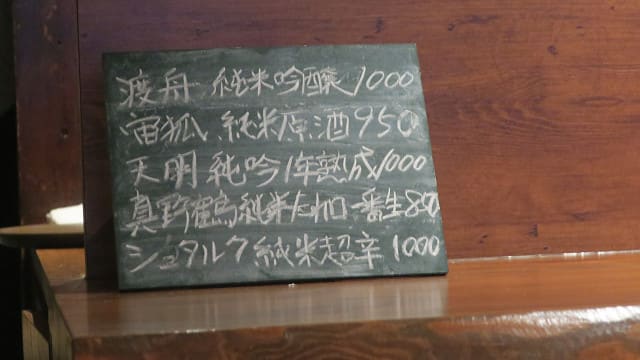 渡舟 純米吟醸 1000
宙狐 純米原酒 950
天明 純吟 1年熟成 1000
真野鶴 純米 辛口 一番生 850
シュタルク 純米超辛 1000